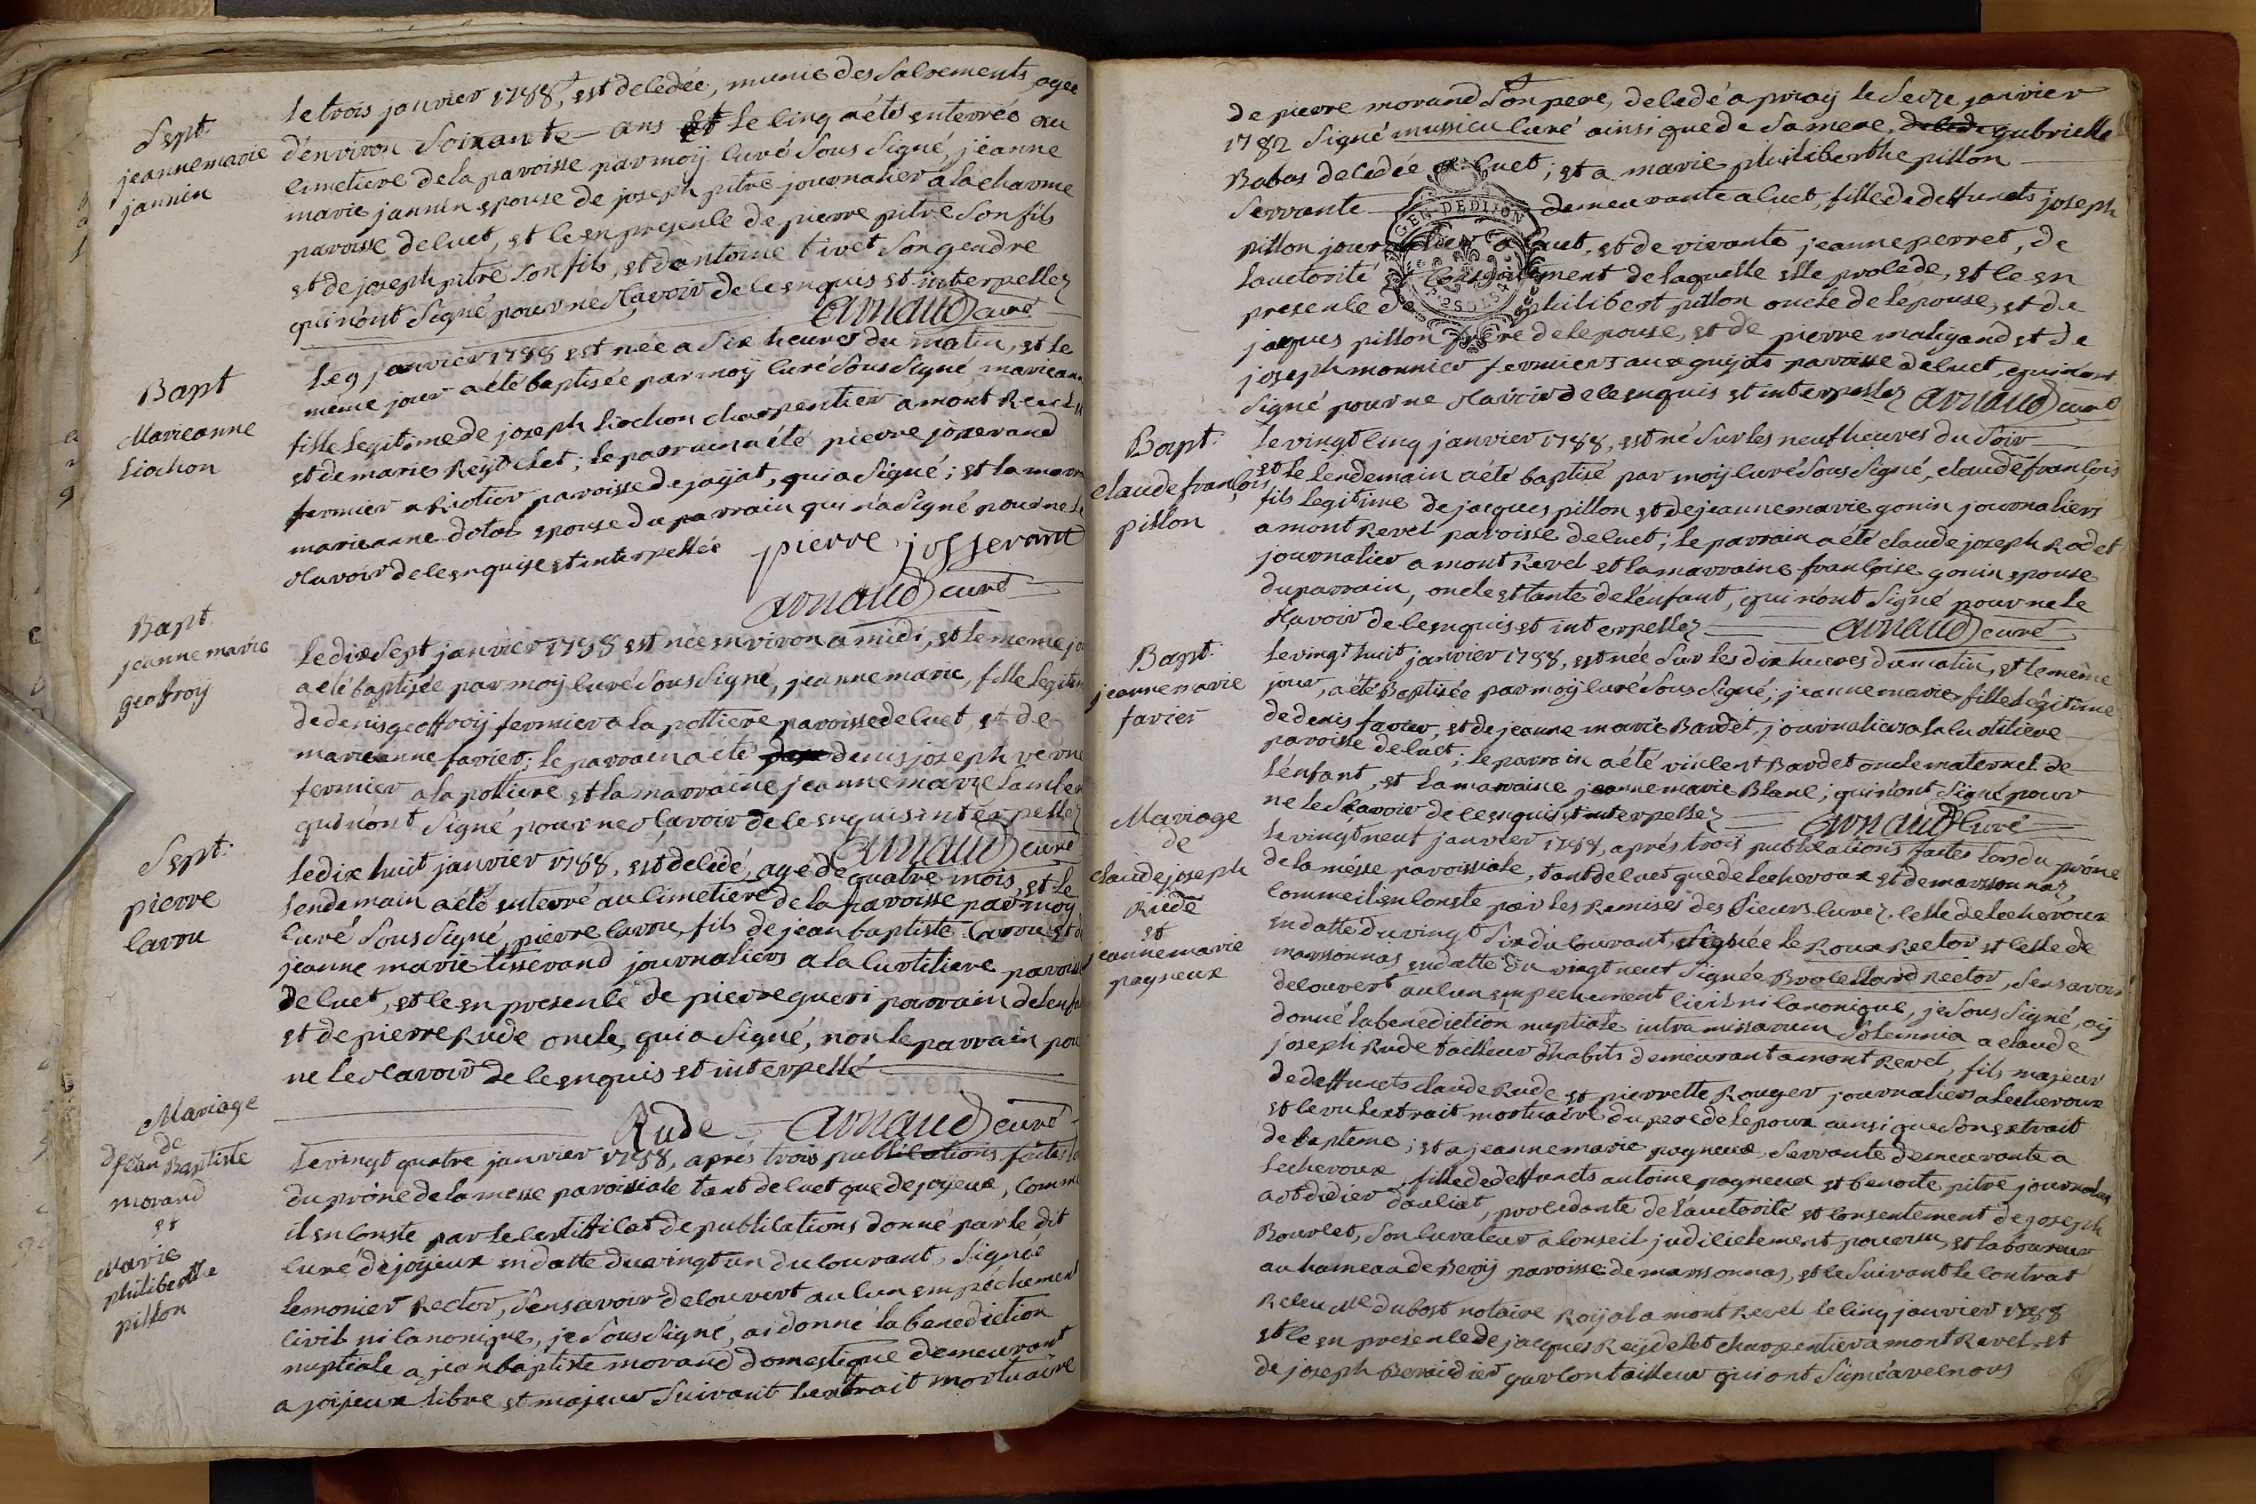 Sept.
jeanne marie
jannin
le trois janvier 1788, est decedée, munie des Sacrements, agée
d'environ Soixante ans Et le cinq a été enterrée au
cimetiere de la paroisse par moÿ Curé Sous Signé, jeanne
marie jannin epouse de joseph pitre journalier a la charme
paroisse de cuet, et ce en presence de pierre pitre Son fils
et de joseph pitre Son fils, et d'antoine tivet Son gendre
qui n'ont Signé pour ne Sçavoir de ce enquis et interpellez
Arnaud curé
Bapt
Marieanne
Liochon
Le 9 janvier 1788 est née a Six heures du matin, et le
même jour a été baptisée par moÿ Curé Sous Signé, marieanne
fille Legitime de joseph Liochon charpentier a mont Revel
et de marie Reÿdelet; le parrain a été pierre josserand
fermier a Riotier paroisse de jaÿat, qui a Signé; et la marr
marieanne dotat epouse du parrain qui n'a Signé pour ne le
Sçavoir de ce enquise et interpellée pierre josserant
Arnaud curé
Bapt.
jeanne marie
geoffroÿ
Le dix Sept janvier 1788 est née environ a midi, et le meme jo
a été baptisée par moÿ Curé Sous Signé, jeanne marie, fille Legitim
de denis geoffroÿ fermier a la pottiere paroisse de cuet, et de
marieanne favier; le parrain a été denis joseph verne
fermier a la pottiere et la marraine jeanne marie
qui n'ont Signé pour ne Sçavoir de ce enquis interpellez
Arnaud curé
Sept.
pierre
Cavou
Le dix huit janvier 1788, est decedé, agé de quatre mois, et le
Lendemain a été enterré au Cimetiere de la paroisse par moÿ
Curé Sous Signé, pierre Cavou, fils de jean baptiste Cavou et d
jeanne marie tisserand journaliers a la Curtiliere paroisse
de cuet, et ce en presence de pierre gueri parrain de l'enfa
et de pierre Rude oncle, qui a Signé, non le parrain pou
ne le Sçavoir de ce enquis et interpellé
Rude Arnaud curé
Mariage
de
jean Baptiste
morand
et
Marie
philiberthe
pillon
Le vingt quatre janvier 1788, aprés trois publications faites la
du prône de la messe paroissiale tant de cuet que de joÿeux, Comme
il en Conste par le Certifficat de publications donné par le dit
Curé de joÿeux en datte du vingt un du Courant, Signé
Lemonier Rector, Sens avoir decouvert aucun empêchement
Civil ni Canonique, je Sous Signé, ai donné la benediction
nuptiale a jean baptiste morand domestique demeurant
a joÿeux libre et majeur Suivant l'extrait mortuaire
de pierre morand Son pere, decedé a priaÿ le Seize janvier
1782 Signé curé ainsi que de Sa mere, gabrielle
Babas decedée a Cuet; et a marie philiberthe pillon
Servante demeurante a cuet, fille de deffuncts joseph
pillon journalier a Cuet, et de vivante jeanne perret, de
L'auctorité et Consentement de laquelle elle procede, et ce en
presence de philibert pillon oncle de l'epouse, et de
jaques pillon frere de l'epouse, et de pierre maligand et de
joseph monnier fermiers aux guÿots paroisse de cuet, qui n'ont
Signé pour ne Sçavoir de ce enquis et interpellez Arnaud curé
Bapt.
claude françois
pillon
Le vingt cinq janvier 1788, est né Sur les neuf heures du Soir
et Le Lendemain a été baptisé par moÿ Curé Sous Signé, claude françois
fils Legitime de jacques pillon et de jeanne marie gonin journaliers
a mont Revel paroisse de cuet; le parrain a été claude joseph Rodet
journalier a mont Revel et la marraine françoise gonin epouse
du parrain, oncle et tante de l'enfant, qui n'ont Signé pour ne le
Sçavoir de ce enquis et interpellez Arnaud curé
Bapt.
jeanne marie
favier
Le vingt huit janvier 1788, est née Sur les dix heures du matin, et le même
jour, a été Baptisée par moÿ Curé Sous Signé; jeanne marie fille Legitime
de denis favier, et de jeanne marie Bardet, journaliers a la Curtiliere
paroisse de cuet; le parrain a été vincent Bardet oncle maternel de
l'enfant, et la marraine jeanne marie Blanc; qui n'ont Signé pour
ne le Sçavoir de ce enquis et interpellez Arnaud Curé
Mariage
de
claude joseph
Rude
et
jeanne marie
pagneux
Le vingt neuf janvier 1788, aprés trois publications faites lors du prône
de la mésse paroissiale, tant de cuet que de Lecheroux et de marsonnas,
Comme il en Conste par les Remises des Sieurs Curez, celle de Lecheroux
en datte du vingt Six du Courant, Signée le Roux Rector et celle de
marsonnas en datte du vingt neuf Signée Brocellard Rector, Sens avoir
decouvert aucun empechement Civil ni Canonique, je Sous Signé, aÿ
donné la benediction nuptiale intra missarum Solemnia a claude
joseph Rude tailleur d'habits demeurant a mont Revel, fils majeur
de deffuncts claude Rude et pierrette Rouger journaliers a Lecheroux
et ce vu l'extrait mortuaire du pere de l'epoux ainsi que Son extrait
de bapteme; et a jeanne marie pagneux Servante demeurante a
Lecheroux, fille de deffuncts antoine pagneux et benoite pitre journaliers
a st didier d'auciat, procedante de l'auctorité et Consentement de joseph
Bourcet, Son Curateur a Conseil judicielement pourvu, et laboureur
au hameau de Beÿ paroisse de marsonnas, et ce Suivant le Contrat
Receu Me dubost notaire Roÿal a mont Revel le cinq janvier 1788
et ce en presence de jacques Reÿdelet charpentier a mont Revel, et
de joseph Beraidier garçon tailleur qui ont Signé avec nous
GEN. DE DIJON